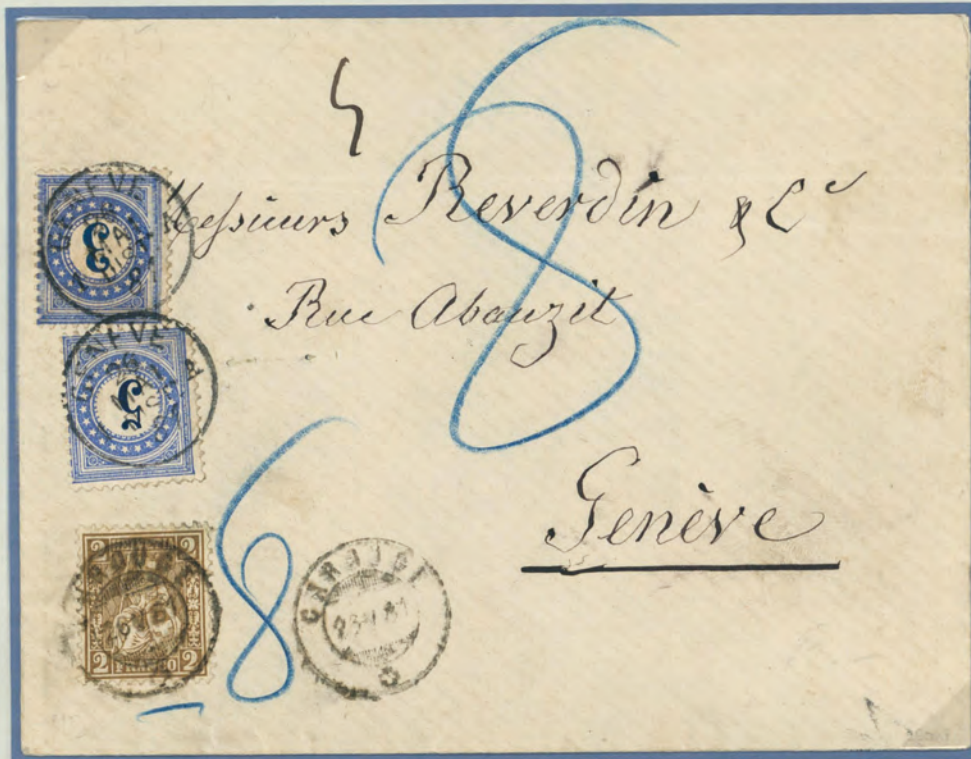 8
Messieurs Reverdin & Cie
Rue Abauzit
Genève
GENEVE
3
GENEVE
5
2 2
CAROUGE
2 FRANCO 2
8
CAROUGE